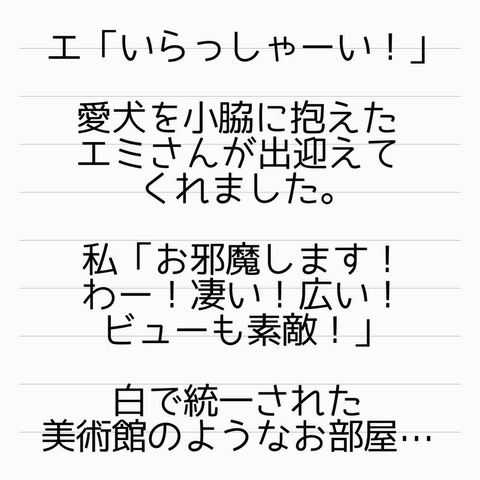 エ「いらっしゃーい！」
愛犬を小脇に抱えた
エミさんが出迎えて
くれました。
私「お邪魔します！
わー！凄い！広い！
ビューも素敵！」
白で統一された
美術館のようなお部屋…